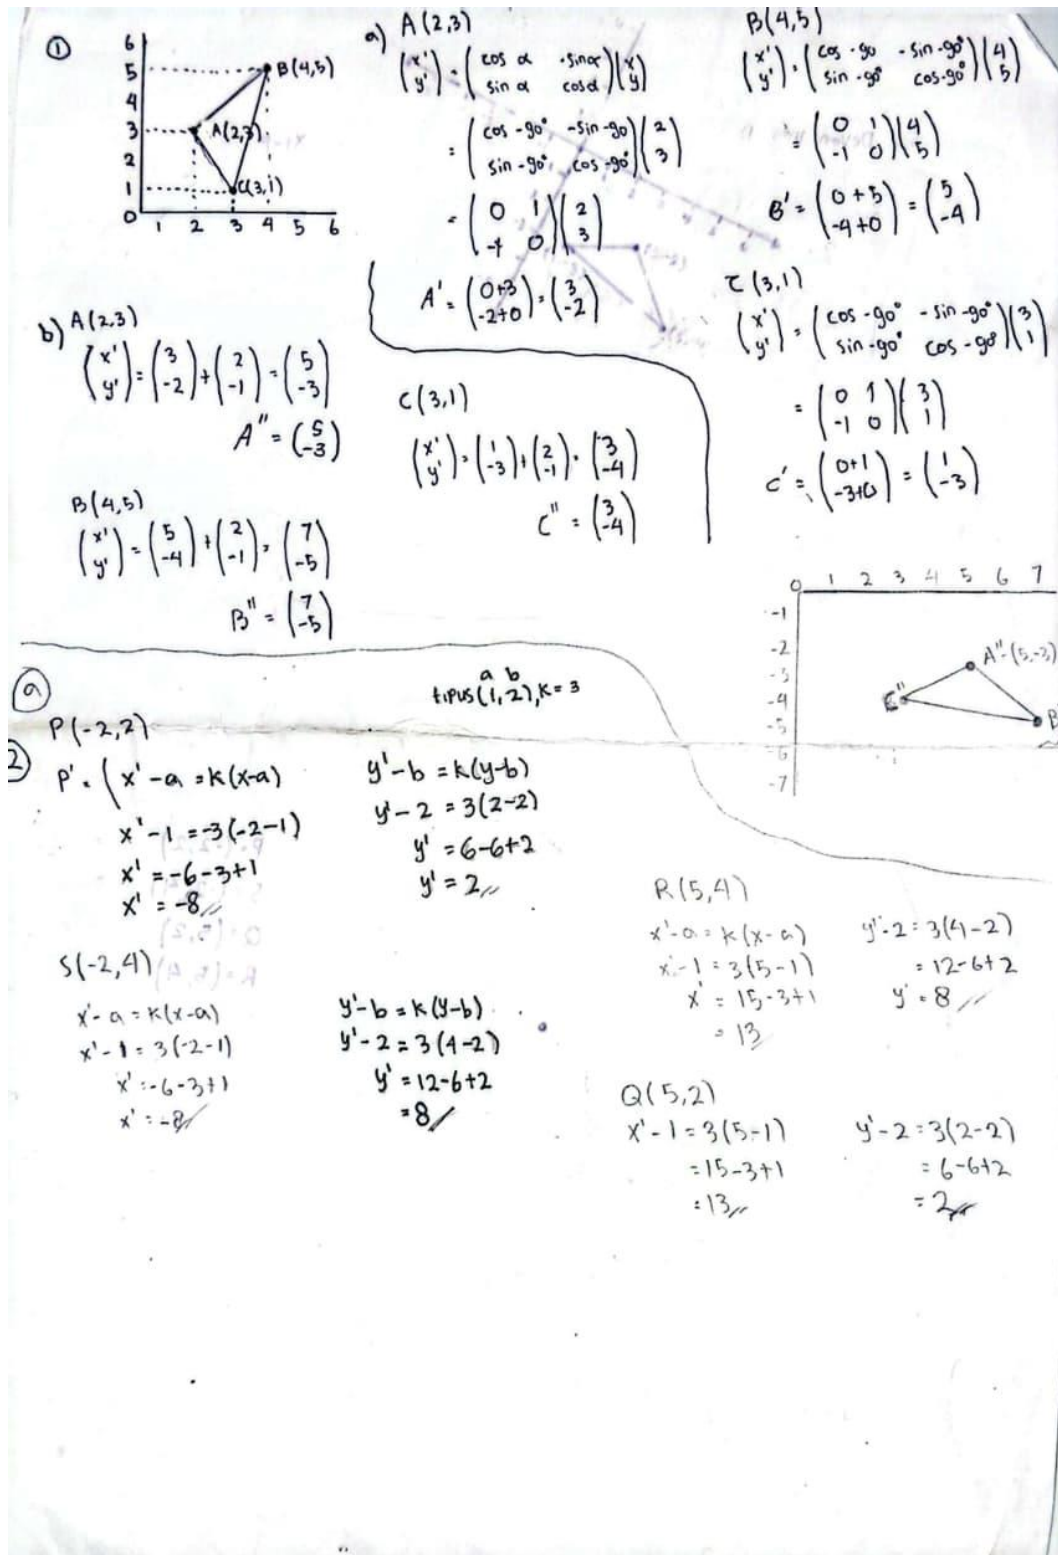 ①
6
5
4
3
2
1
0
1 2 3 4 5 6
B(4,5)
A(2,3)
C(3,1)
a) A(2,3)
(x' y') = (cos α -sin α sin α cos α)(x y)
= (cos -90° -sin -90 sin -90° cos -90°)(2 3)
= (0 1 -1 0)(2 3)
A' = (0+3 -2+0) = (3 -2)
B(4,5)
(x' y') = (cos -90 -sin -90° sin -90° cos -90°)(4 5)
= (0 1 -1 0)(4 5)
B' = (0+5 -4+0) = (5 -4)
C(3,1)
(x' y') = (cos -90° -sin -90° sin -90° cos -90°)(3 1)
= (0 1 -1 0)(3 1)
C' = (0+1 -3+0) = (1 -3)
b) A(2,3)
(x' y') = (3 -2) + (2 -1) = (5 -3)
A'' = (5 -3)
B(4,5)
(x' y') = (5 -4) + (2 -1) = (7 -5)
B'' = (7 -5)
C(3,1)
(x' y') = (1 -3) + (2 -1) = (3 -4)
C'' = (3 -4)
0 1 2 3 4 5 6 7
-1
-2
-3
-4
-5
-6
-7
A''(5,-3)
C''
B
a
2
a b
titus (1,2), k = 3
P(-2,2)
P' = ( x' - a = k(x-a)
x' - 1 = -3(-2-1)
x' = -6-3+1
x' = -8
y' - b = k(y-b)
y' - 2 = 3(2-2)
y' = 6-6+2
y' = 2
S(-2,4)
x' - a = k(x-a)
x' - 1 = 3(-2-1)
x' = -6-3+1
x' = -8
y' - b = k(y-b)
y' - 2 = 3(4-2)
y' = 12-6+2
= 8
R(5,4)
x' - a = k(x-a)
x' - 1 = 3(5-1)
x' = 15-3+1
= 13
y' - 2 = 3(4-2)
= 12-6+2
y' = 8
Q(5,2)
x' - 1 = 3(5-1)
= 15-3+1
= 13
y' - 2 = 3(2-2)
= 6-6+2
= 2